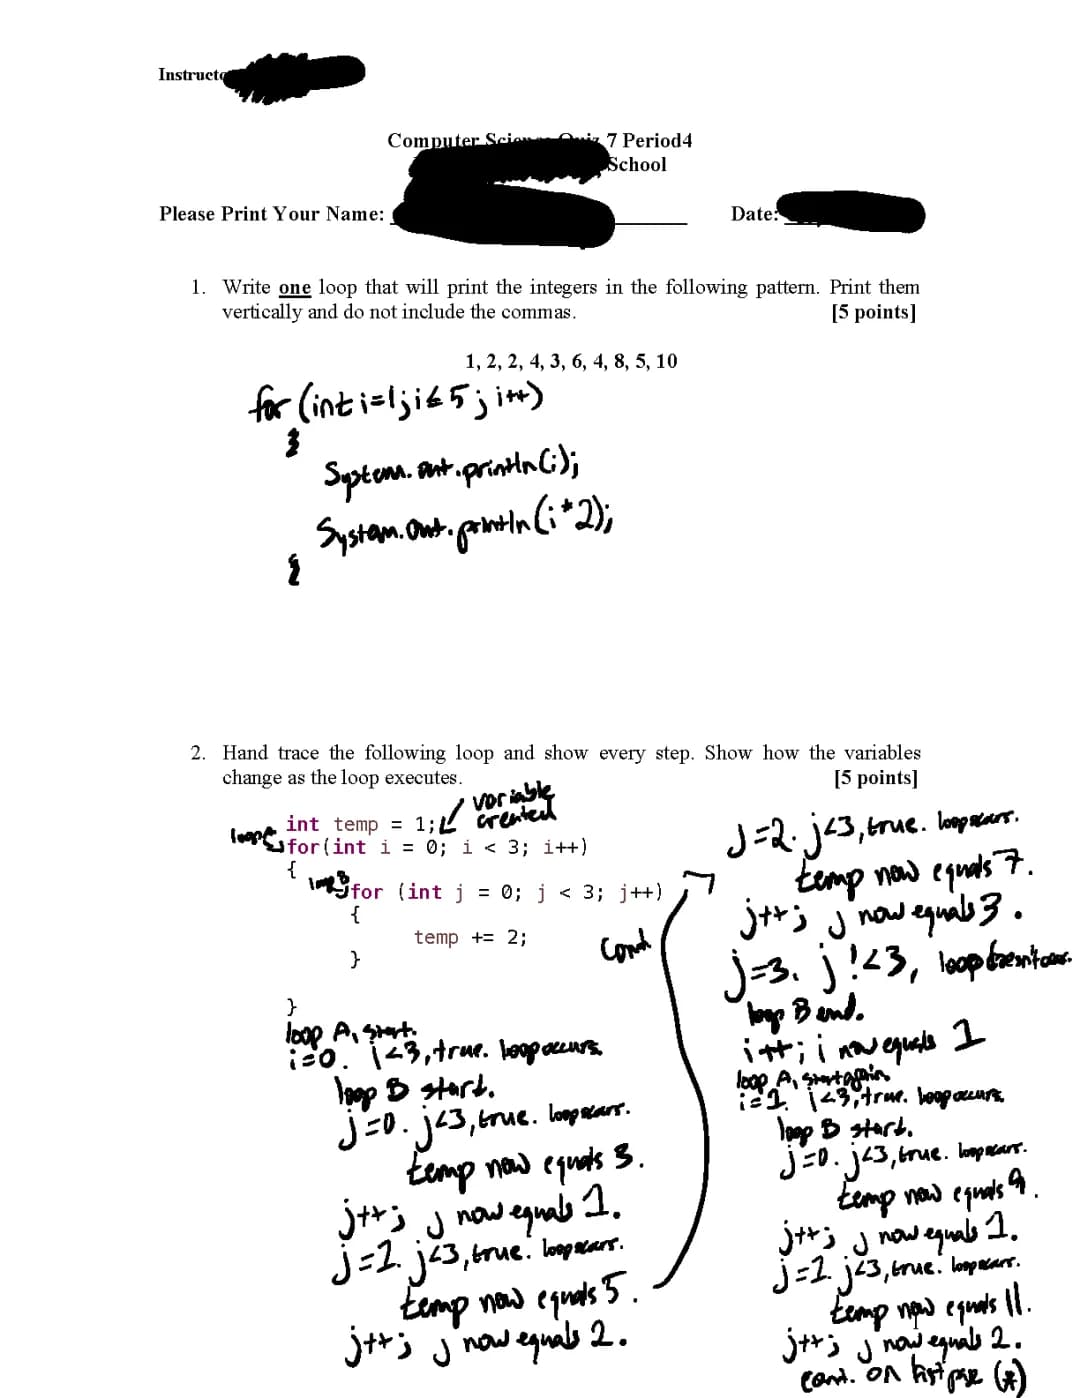 Instructo
Computer Scien Quiz 7 Period4
School
Please Print Your Name:
Date:
1. Write one loop that will print the integers in the following pattern. Print them
vertically and do not include the commas. [5 points]
1, 2, 2, 4, 3, 6, 4, 8, 5, 10
for (int i=1; i≤5; i++)
}
System.out.println(i);
System.out.println(i*2);
{
2. Hand trace the following loop and show every step. Show how the variables
change as the loop executes. [5 points]
variable
created
int temp = 1;
loop A for(int i = 0; i < 3; i++)
{
loop B for (int j = 0; j < 3; j++)
{
temp += 2;
}
}
loop A, start.
i=0. i<3, true. loop occurs.
loop B start.
j=0. j<3, true. loop occurs.
temp now equals 3.
j++; j now equals 1.
j=1. j<3, true. loop occurs.
temp now equals 5.
j++; j now equals 2.
Cont
J=2. j<3, true. loop occurs.
temp now equals 7.
j++; j now equals 3.
j=3. j!<3, loop
loop B end.
i++; i now equals 1
loop A, start again
i=1. i<3, true. loop occurs.
loop B start.
j=0. j<3, true. loop occurs.
temp now equals 9.
j++; j now equals 1.
j=1. j<3, true. loop occurs.
temp now equals 11.
j++; j now equals 2.
cont. on last page (*)